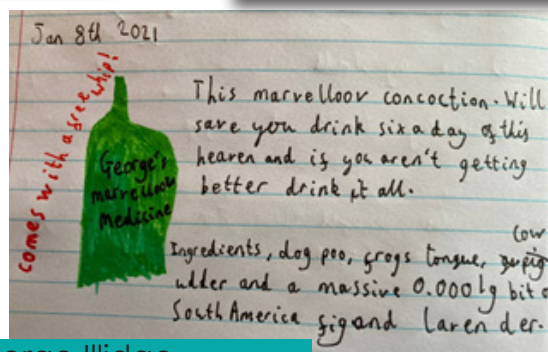 Jan 8th 2021
comes with a free whip!
George's
marvellous
Medicine
This marvelloor concoction. Will
save you drink six a day of this
heaven and if you aren't getting
better drink it all.
cow
Ingredients, dog poo, frogs tongue,
udder and a massive 0.0001g bit
South America fig and lavender.